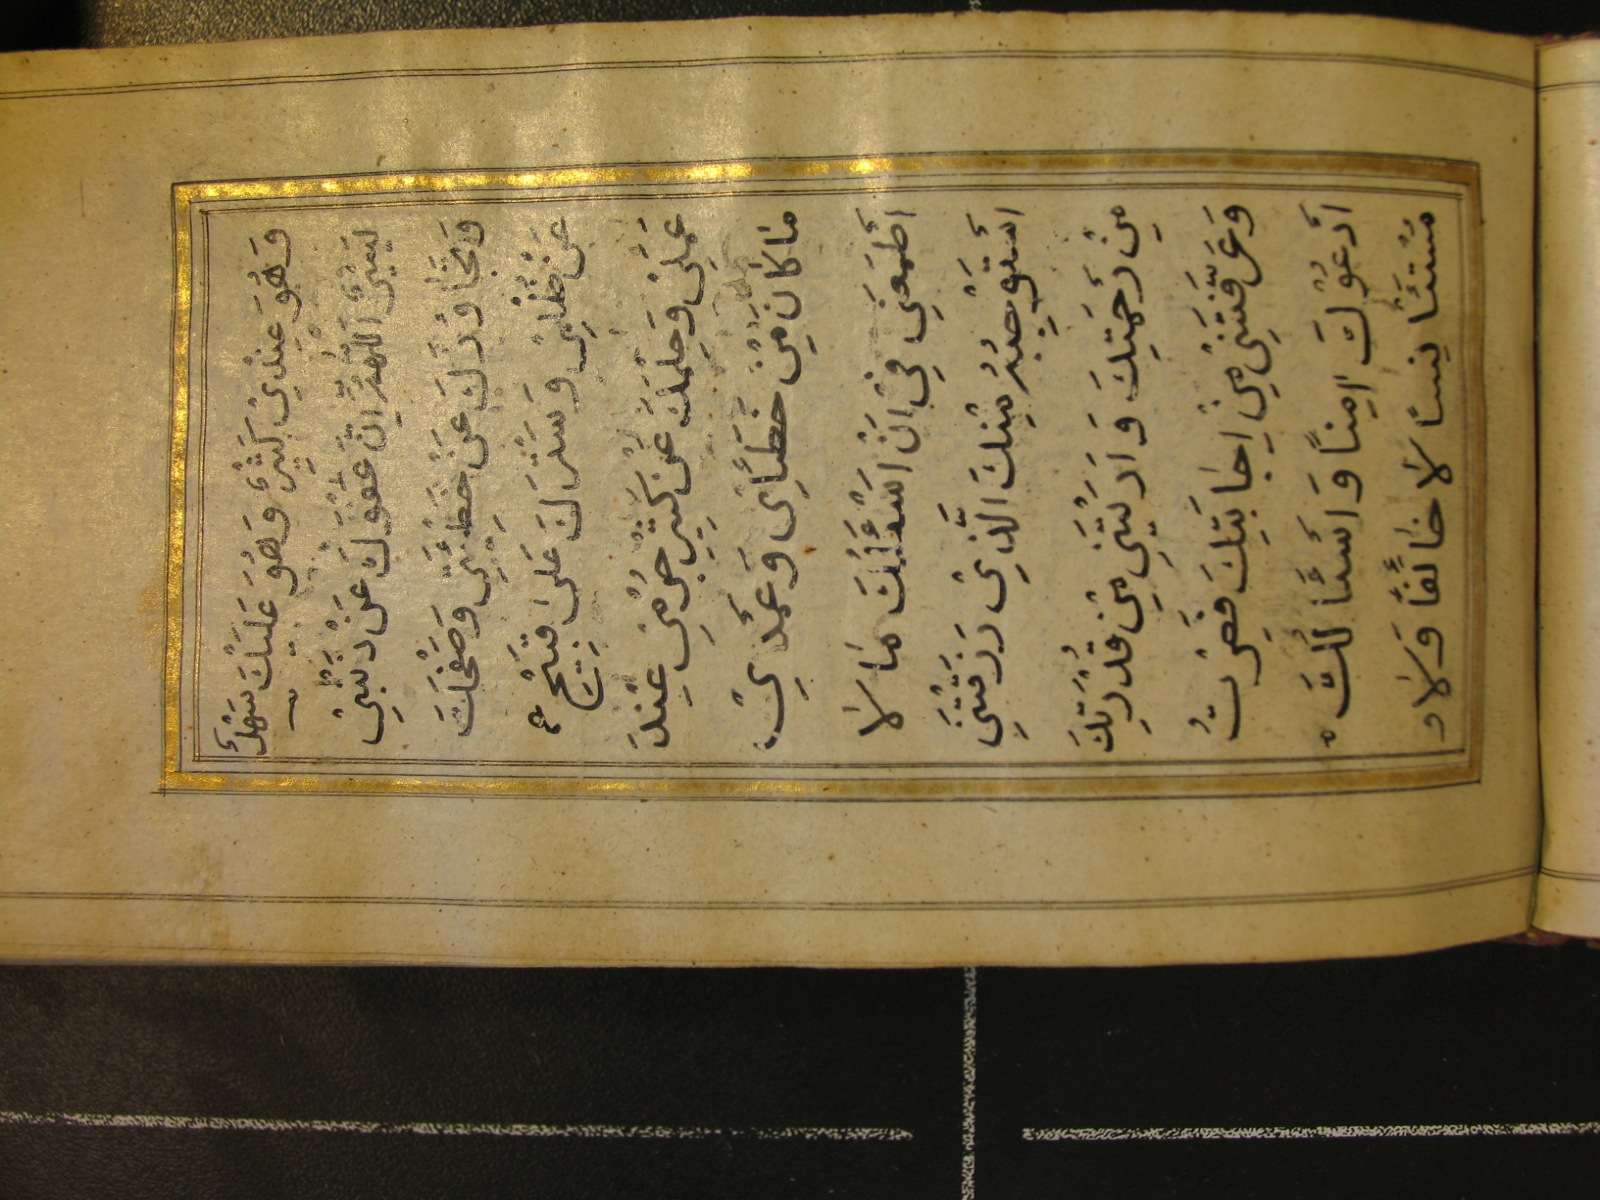 وَهُوَ عِنْدِيْ كَثِيْرٌ وَهُوَ عَلَيْكَ سَهْلٌ
يَسِيْرٌ اَللّٰهُمَّ اِنَّ عَفْوَكَ عَنْ ذَنْبِيْ
وَتَجَاوُزَكَ عَنْ خَطِيْئَتِي وَصَفْحَكَ
عَنْ ظُلْمِيْ وَسَتْرَكَ عَلىٰ قَبِيْحِ
عَمَلِيْ وَحِلْمَكَ عَنْ كَثِيْرِ جُرْمِيْ عِنْدَ
مَا كَانَ مِنْ خَطَائِي وَعَمْدِيْ
اَطْمَعَنِي فِي اَنْ اَسْئَلَكَ مَا لَا
اَسْتَوْجِبُهُ مِنْكَ الَّذِيْ رَزَقْتَنِي
مِنْ رَحْمَتِكَ وَاَرَيْتَنِي مِنْ قُدْرَتِكَ
وَعَرَّفْتَنِيْ مِنْ اِجَابَتِكَ فَصِرْتُ
اَدْعُوْكَ اٰمِنًا وَاَسْئَا لُكَ
مُسْتَئْنِسًا لَا خَائِفًا وَلَا و